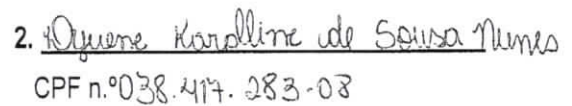 2. Dyuene Karolline de Sousa Nunes
CPF n.º 038.417.283-08